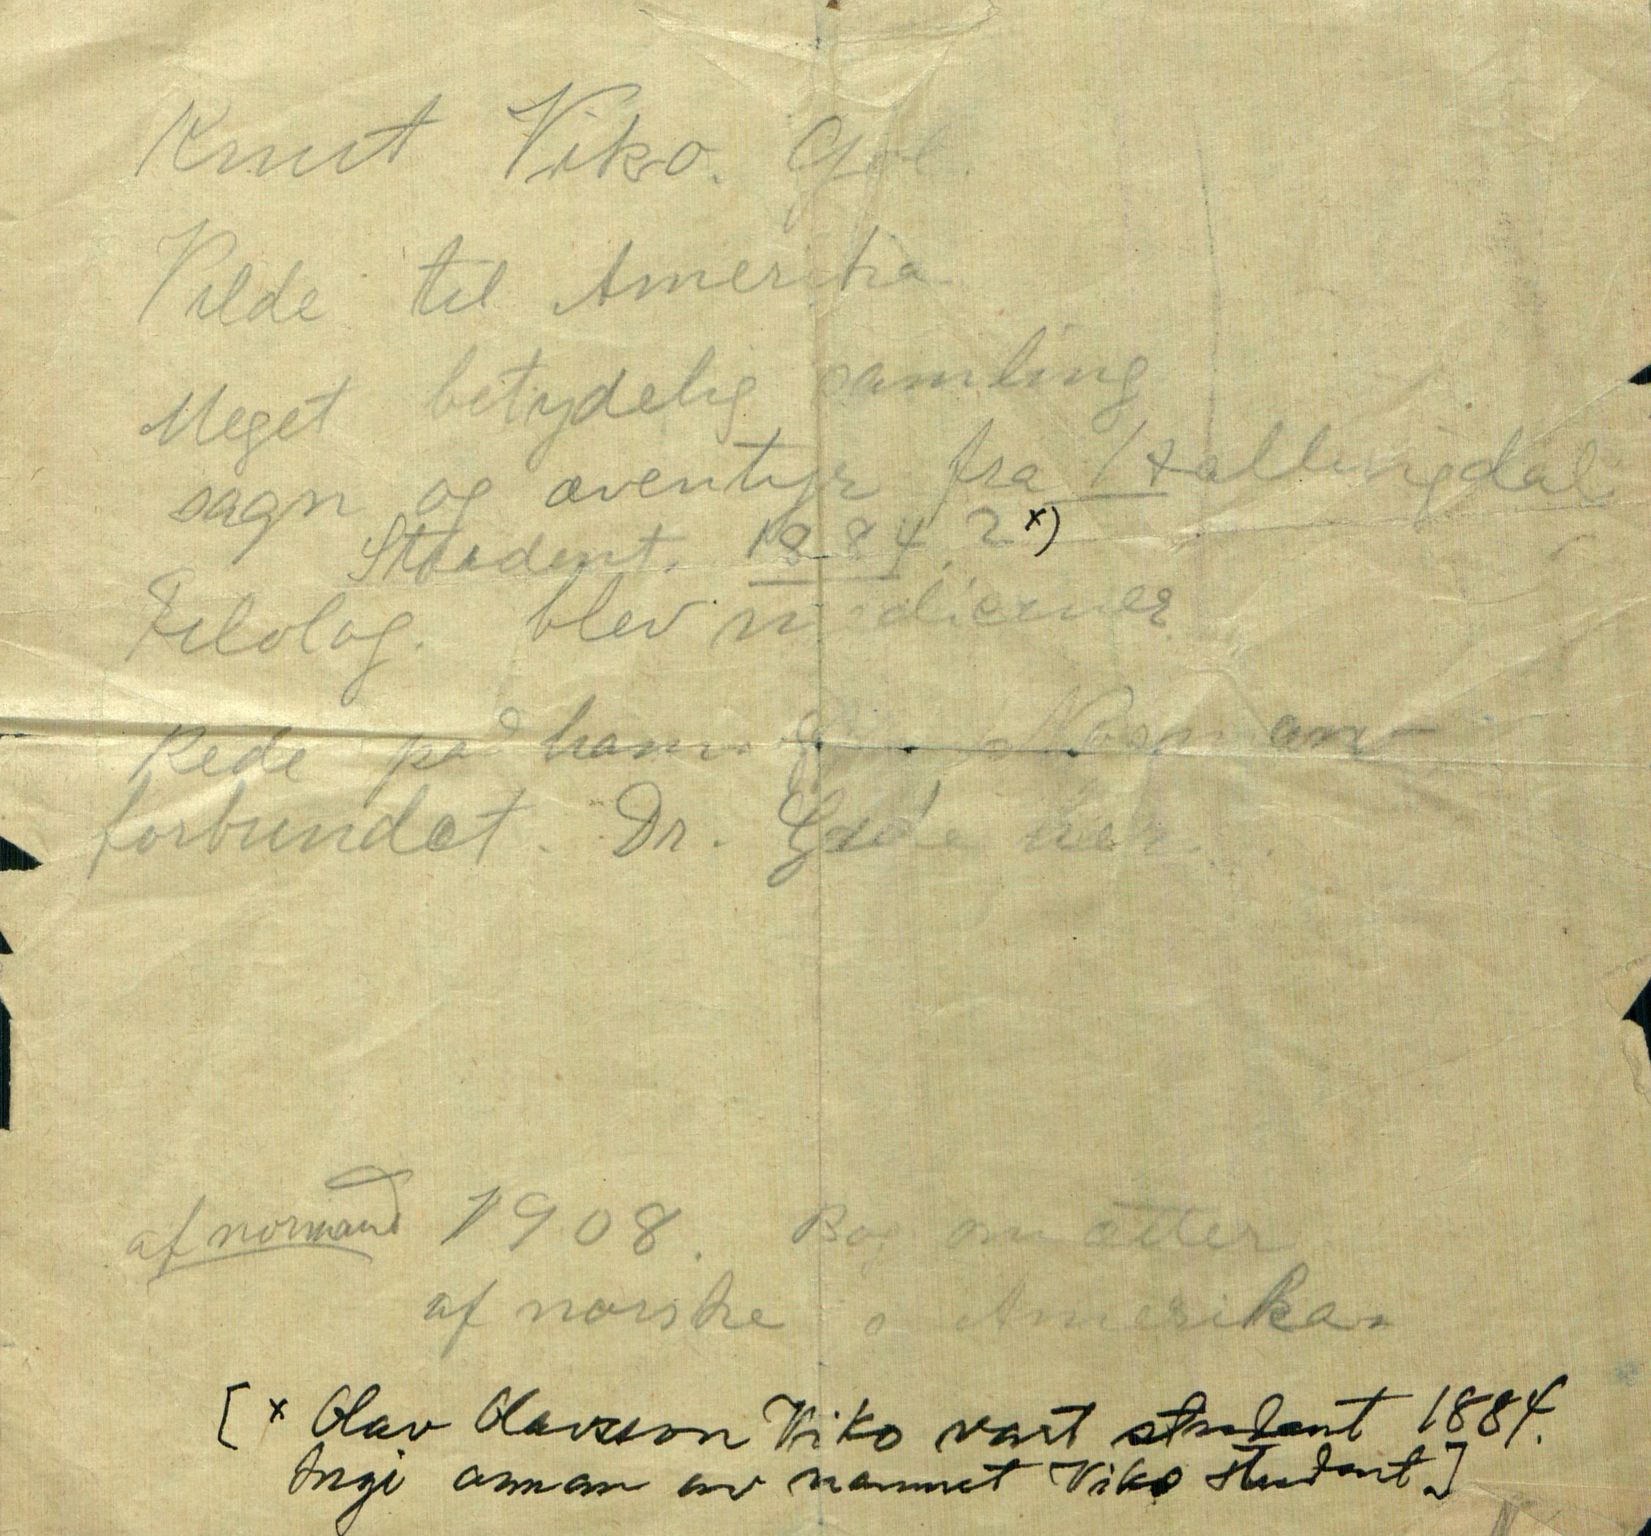 Knut Viko. Gol.
Vilde til Amerika
Meget betydelig samling
sagn og æventyr fra Hallingdal
Student. 1884.? x)
Filolog. blev mediciner
Rede på ham
forbundet. Dr. Gade her.
af normænd 1908. Bog om ætter
af norske i Amerika.
[x Olav Olavsson Viko vart student 1884.
Ingi annan av namnet Viko student.]